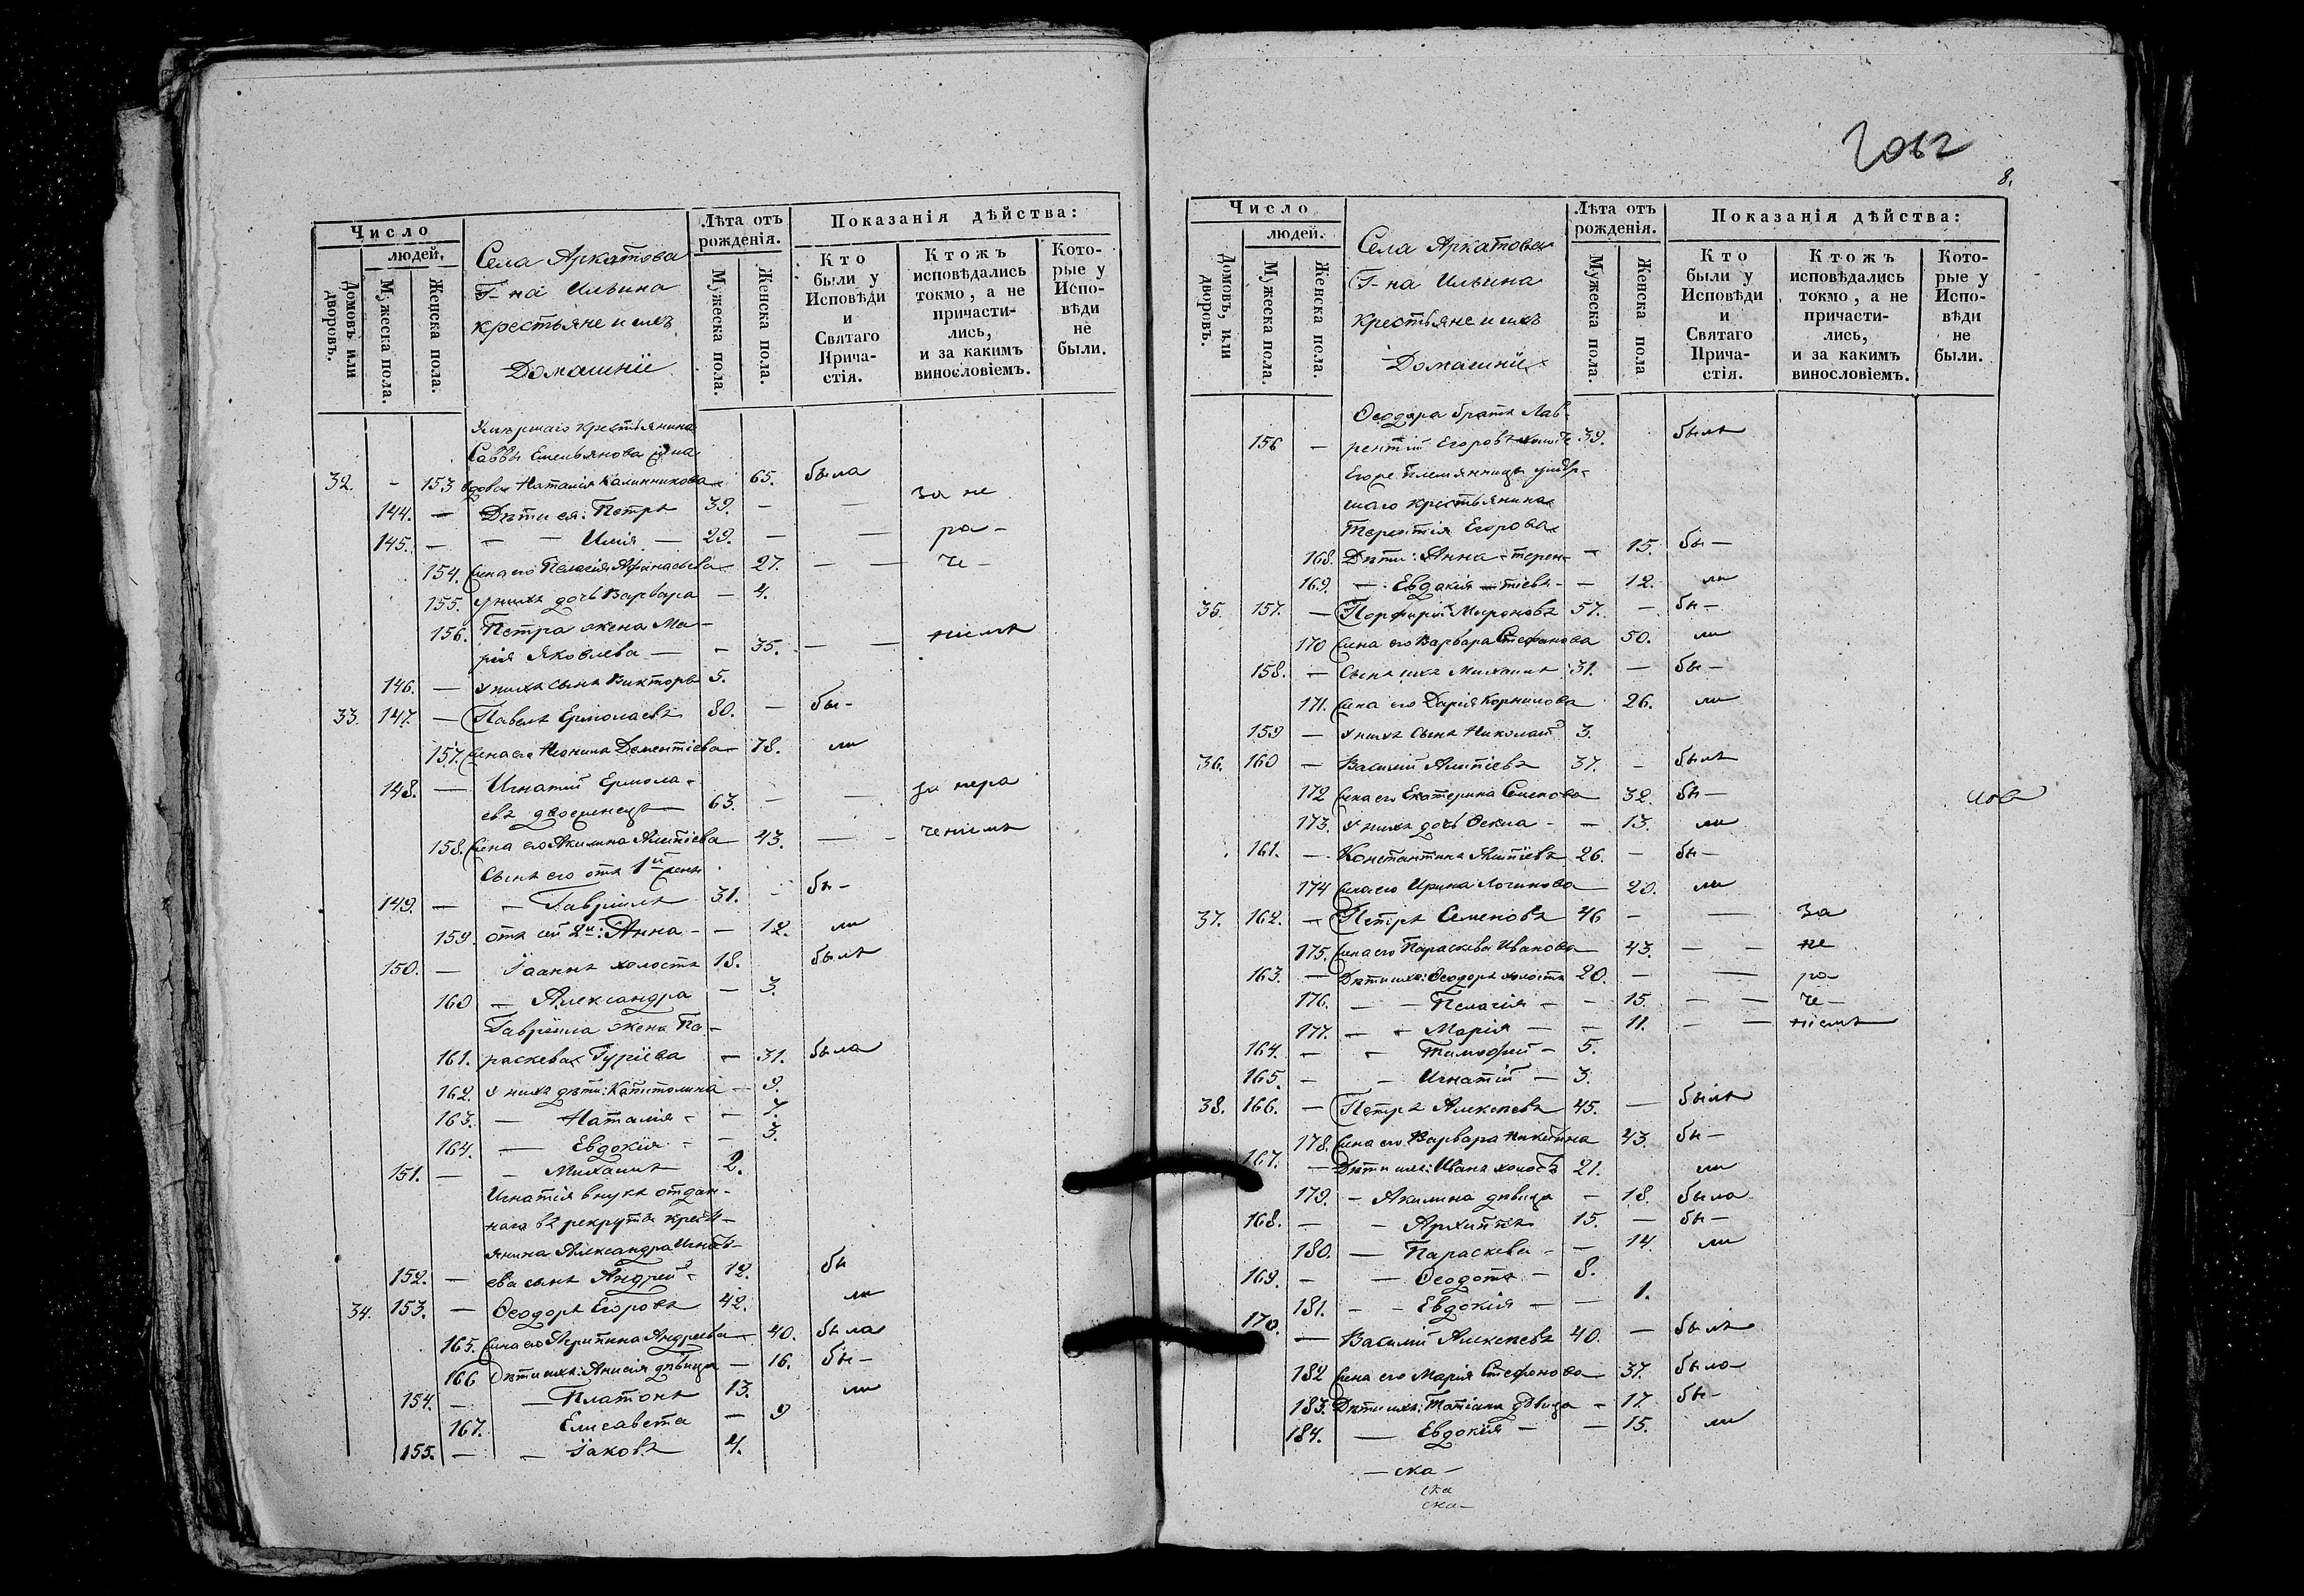 Число
людей,
Домовъ или дворовъ.
Мужеска пола.
Женска пола.
Села Аркатова
Г-на Ильина
крестьяне и ихъ
Домашніи
Лѣта отъ рожденія.
Мужеска пола.
Женска пола.
Показанія дѣйства:
Кто были у Исповѣди и Святаго Прича- стія.
Ктожъ исповѣдались токмо, а не причасти- лись, и за какимъ винословіемъ.
Кото- рые у Испо- вѣди не были.
Умершаго крестьянина
Саввы Емельянова жена
32. - 153 вдова Наталія Калинникова 65. была
144. — Дѣти ея: Петръ 39. - — за не
145. — — — Илія — 29. — — ра-
154. Жена его Пелагія Афанасьева 27. — — че-
155. у нихъ дочь Варвара — 4.
156. Петра жена Ма-
рія Яковлева — - 35. — — ніемъ
146. — У нихъ сынъ Викторъ 5.
33. 147. — Павелъ Ермолаевъ 80. - бы-
157. Жена его Неонила Дементіева 78. ли
148. — Игнатій Ермола-
евъ двоеженецъ 63. - — за нера
158. Жена его Акилина Антіева 43. — - ченіемъ
Сынъ его отъ 1й жены
149. — - Гавріилъ 31. - бы-
159. отъ сей 2й: Анна - - 12. ли
150. — Іоаннъ холостъ 18. былъ
160 — Александра — 3.
Гавріила жена Па-
161. раскева Гуріева — 31. была
162. У нихъ дѣти: Капитолина — 9.
163. — Наталія - — 7.
164. — Евдокія - — 3.
151. — - Михаилъ 2.
Игнатія внукъ отдан-
наго въ рекруты кресть-
янина Александра Игнать-
152. — ева сынъ Андрей - 12. бы
34. 153. — Ѳеодоръ Егоровъ 42. ли
165. Жена его Агрипина Андреева 40. была
166 Дѣти ихъ: Анисія дѣвица — 16. бы-
154. — — Платонъ 13. ли
167. Елисавета — 9
155. — — Іаковъ 4.
2062
8.
Число
людей.
Домовъ, или дворовъ.
Мужеска пола.
Женска пола.
Села Аркатова
Г-на Ильина
Крестьяне и ихъ
Домашніи
Лѣта отъ рожденія.
Мужеска пола.
Женска пола
Показанія дѣйства:
Кто были у Исповѣди и Святаго Прича- стія.
Ктожъ исповѣдались токмо, а не причасти- лись, и за какимъ винословіемъ.
Кото- рые у Испо- вѣди не были.
Ѳеодора братъ Лав-
156 — рентій Егоровъ 39. былъ
Егоре племянницы умер-
шаго крестьянина
Терентія Егорова
168. Дѣти: Анна - терен- — 15. бы —
169. — Евдокія — тіевы — 12. ли
35. 157. — Порфирій Мироновъ 57. — бы —
170 Жена его Варвара Стефанова 50. ли
158. — Сынъ ихъ Михаилъ 31. — бы —
171. Жена его Дарія Корнилова 26. ли
159 — У нихъ сынъ Николай 3.
36. 160 — Василій Антіевъ 37. - былъ
172 Жена его Екатерина Семенова 32. бы —
173. У нихъ дочь Ѳекла - — 13. ли
161. — Константинъ Антіевъ 26. — бы —
174 Жена его Ирина Логинова 20. ли
37. 162. — Петръ Семеновъ 46 — — за
175. Жена его Параскева Иванова 43. — — не
163. — Дѣти ихъ: Ѳеодоръ холостъ 20. — — ра
176. — — Пелагія — - 15. — — че-
177. — — Марія — — 11. - — ніемъ
164. — — Тимофей — 5.
165. — — Игнатій — 3.
38. 166. — Петръ Алексеевъ 45. — былъ
178. Жена его Варвара Никитина 43. бы —
167. — Дѣти ихъ: Иванъ холостъ 21. ли
179. — Акилина дѣвица — 18. была
168. — — Архиппъ 15. — бы —
180. — Параскева — — 14. ли
169. — — Ѳеодотъ — 8.
181. — — Евдокія — — 1.
170. — Василій Алексеевъ 40. — былъ
182 Жена его Марія Стефанова 37. была
183. Дѣти ихъ: Татіана дѣвица — 17. бы-
184. — Евдокія — — 15. ли
— ска —
ска
ска —